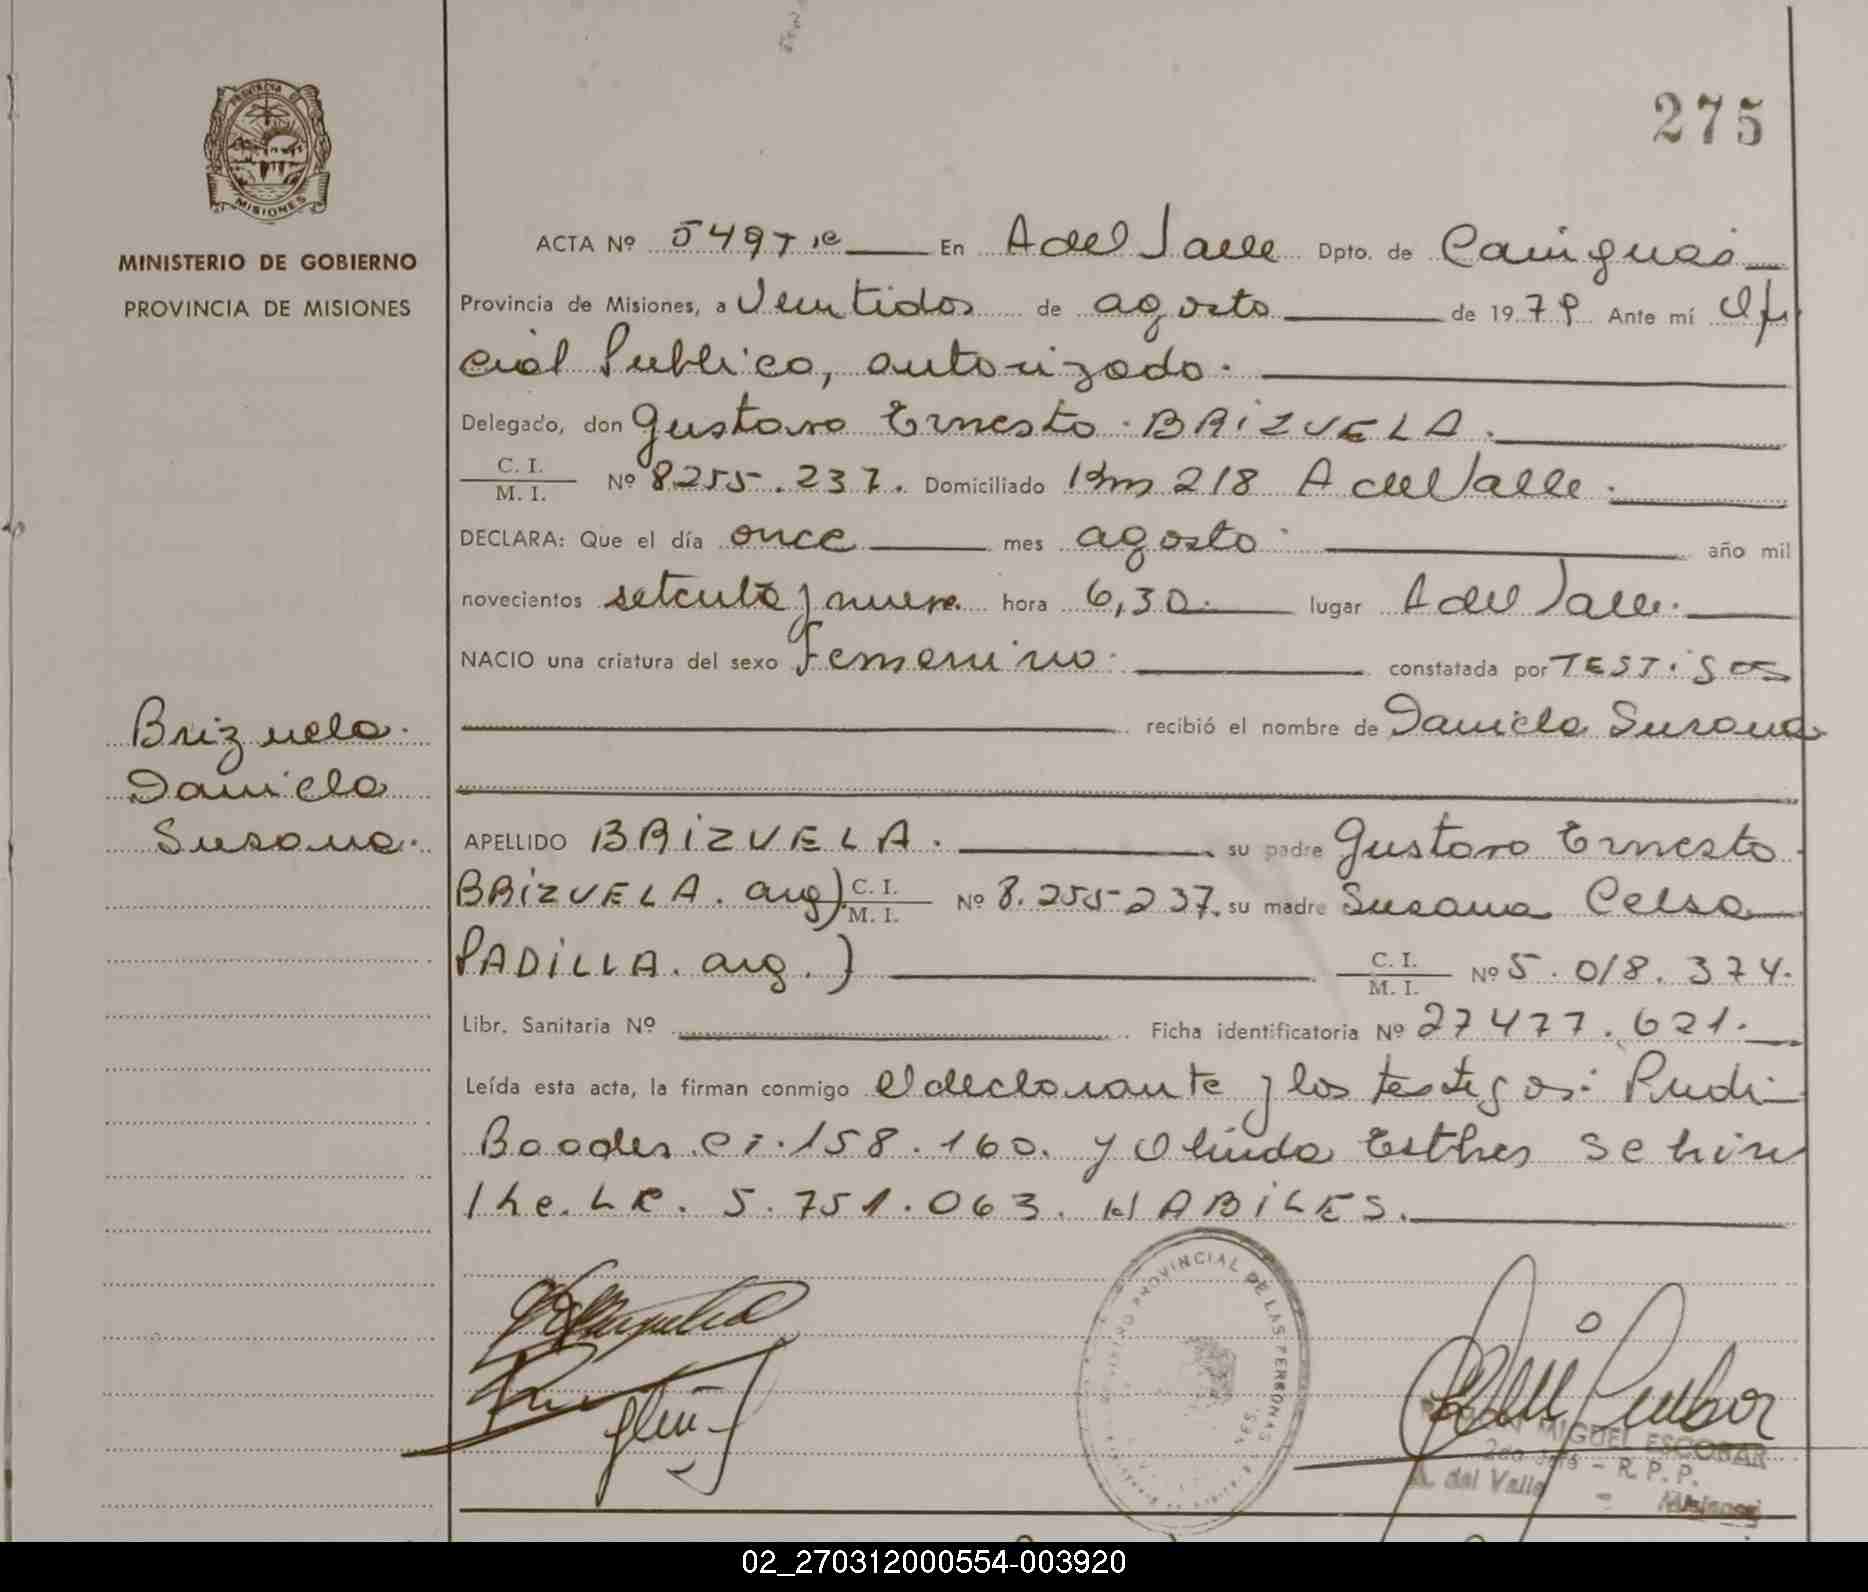 275
PROVINCIA DE
MISIONES
MINISTERIO DE GOBIERNO
PROVINCIA DE MISIONES
ACTA Nº 549 En A del Valle Dpto. de Cainguás
Provincia de Misiones, a Veintidos de agosto de 1979 Ante mí Ofi
cial Publico, autorizado.
Delegado, don Gustavo Ernesto BRIZUELA.
C. I. / M. I. Nº 8255.237. Domiciliado Km 218 A del Valle.
DECLARA: Que el día once mes agosto año mil
novecientos setenta y nueve hora 6,30. lugar A del Valle.
NACIO una criatura del sexo femenino. constatada por TESTIGOS
recibió el nombre de Daniela Susana
Brizuela.
Daniela
Susana.
APELLIDO BRIZUELA. su padre Gustavo Ernesto
BRIZUELA. arg) C. I. / M. I. Nº 8.255-237. su madre Susana Celsa
PADILLA. arg.) C. I. / M. I. Nº 5.018.374.
Libr. Sanitaria Nº Ficha identificatoria Nº 27477.621.
Leída esta acta, la firman conmigo el declarante y los testigos: Rudi
Baades ci. 158.160. y Olinda Esther Schirm
The. LC. 5.751.063. HABILES.
REGISTRO PROVINCIAL DE LAS PERSONAS
MIGUEL ESCOBAR
2do Jefe - R. P. P.
A. del Valle - Misiones
02_270312000554-003920